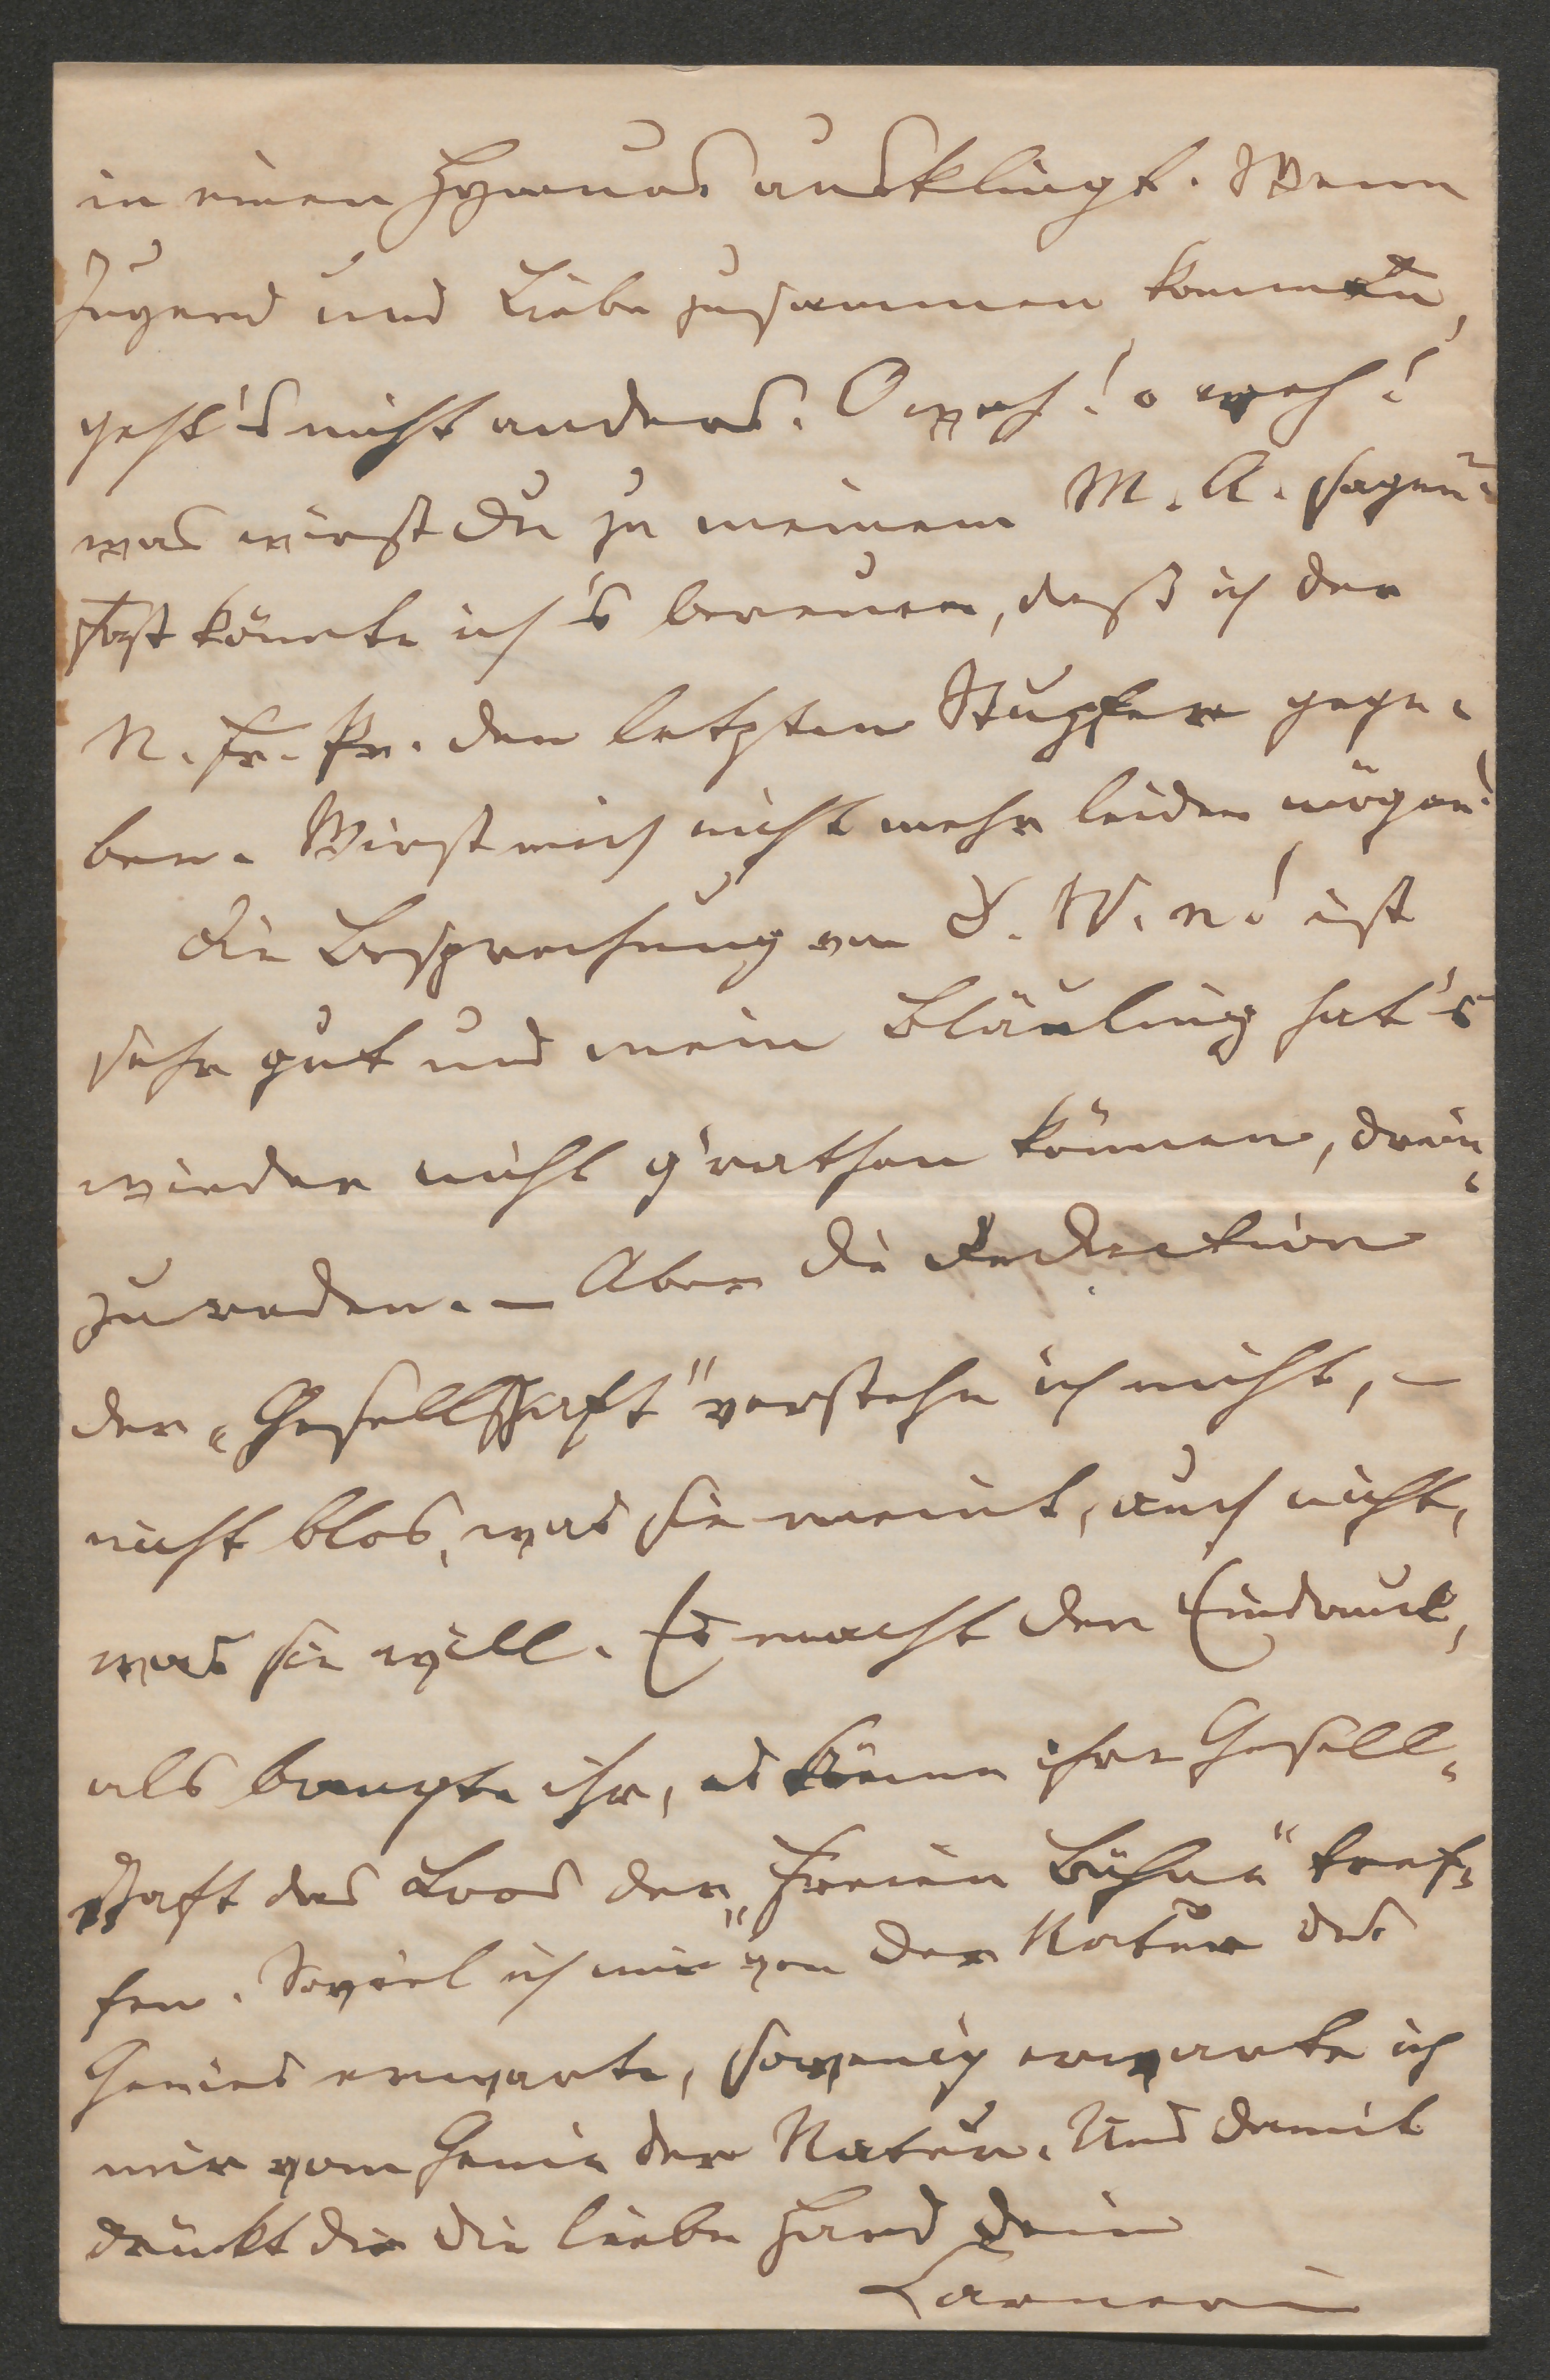 in einen Hymnus ausklingt. Wenn
Jugend und Liebe zusammen kommen,
geht's nicht anders. O weh! o weh!
was wirst Du zu meinem M. A. sagen?
Fast könnte ich's bereuen, daß ich der
N. Fr. Pr. den letzten Stupfer gege-
ben. Wirst mich nicht mehr leiden mögen!
Die Besprechung von D. W. n! ist
sehr gut und mein Bläuling hat's
wieder nicht g'rathen können, drein-
zureden. – Aber die Redaction
der „Gesellschaft" verstehe ich nicht, –
nicht blos, was sie meint, auch nicht,
was sie will. Es macht den Eindruck,
als bangte ihr, es könne ihre Gesell-
schaft das Loos der „Freien Bühne" tref-
fen. Soviel ich mir von der Natur des
Genies erwarte, sowenig erwarte ich
mir vom Genie der Natur. Und damit
drückt dir die liebe Hand Dein
Carneri